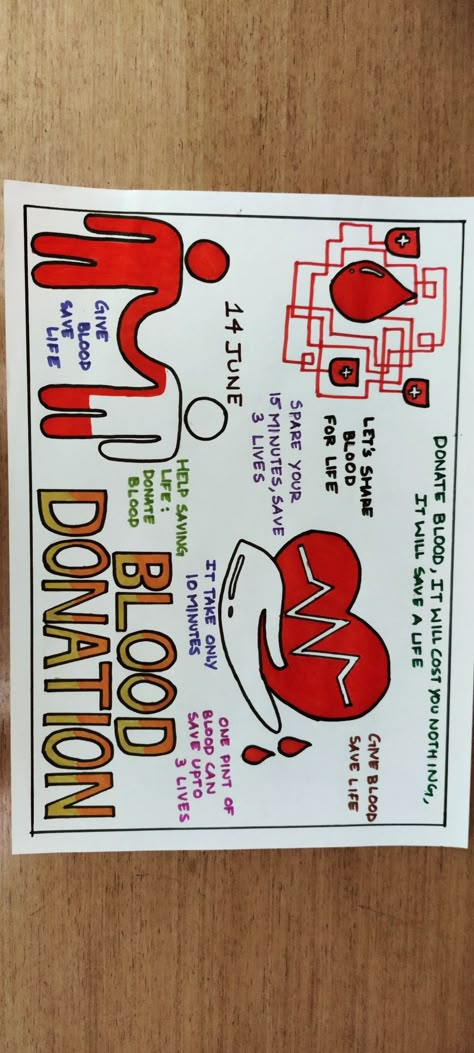 DONATE BLOOD, IT WILL COST YOU NOTHING,
IT WILL SAVE A LIFE
LET'S SHARE
BLOOD
FOR LIFE
GIVE BLOOD
SAVE LIFE
SPARE YOUR
15 MINUTES, SAVE
3 LIVES
14 JUNE
HELP SAVING
LIFE:
DONATE
BLOOD
IT TAKE ONLY
10 MINUTES
ONE PINT OF
BLOOD CAN
SAVE UPTO
3 LIVES
GIVE
BLOOD
SAVE
LIFE
BLOOD
DONATION